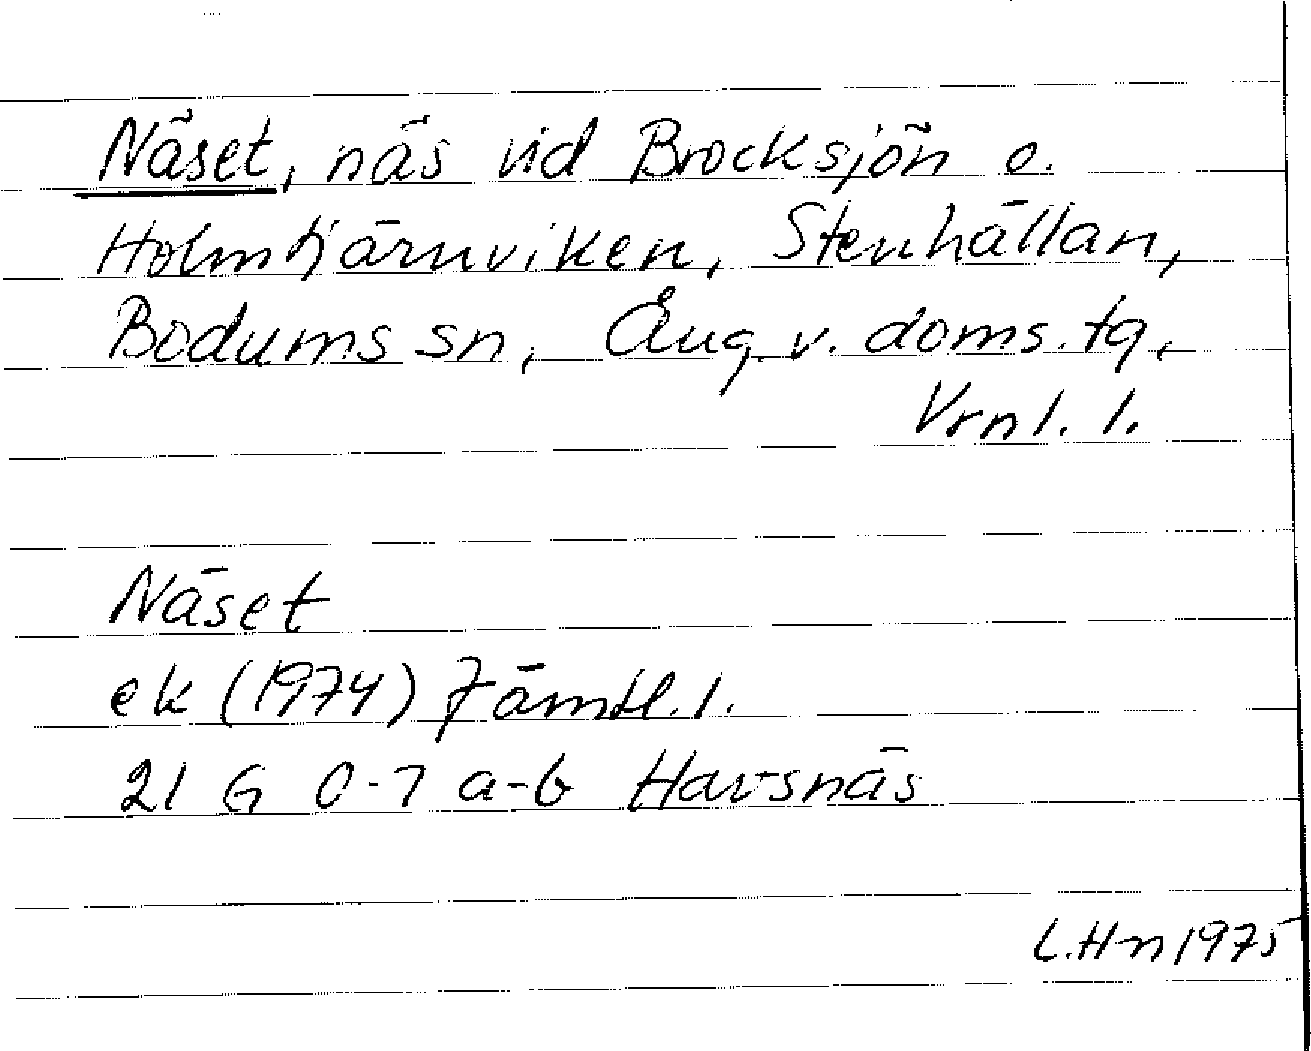 Näset, näs vid Brocksjön o.
Holmtjärnviken, Stenhällan,
Bodums sn, Ång. v. doms. tg,
Vrnl. l.
Näset
ek (1974) Jämtl. l.
21 G 0-1 a-b Havsnäs
L.Hn 1975